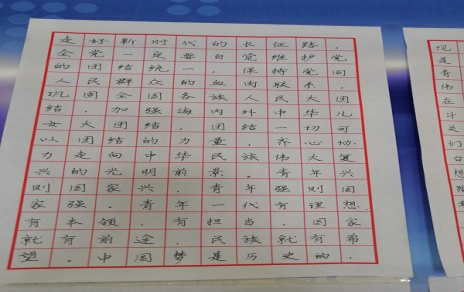 走好新时代的长征路，
全党一定要自觉维护党
的团结统一，保持党同
人民群众的血肉联系，
巩固全国各族人民大团
结，加强海内外中华儿
女大团结，团结一切可
以团结的力量，齐心协
力走向中华民族伟大复
兴的光明前景。青年兴
则国家兴，青年强则国
家强。青年一代有理想、
有本领、有担当，国家
就有前途，民族就有希
望。中国梦是历史的、
现
是
青
伟
在
斗